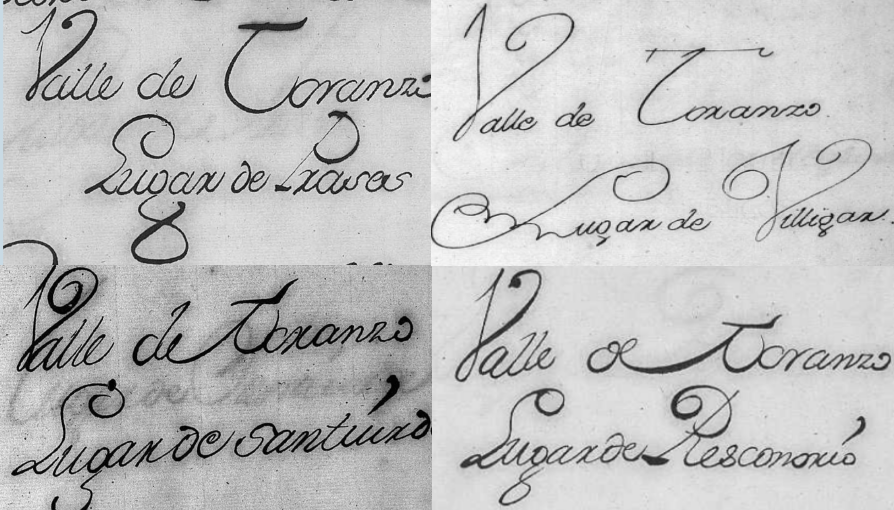 Valle de Toranzo
Lugar de Prases
Valle de Toranzo
Lugar de Villigar.
Valle de Toranzo
Lugar de
Valle de Toranzo
Lugar de Resconorio